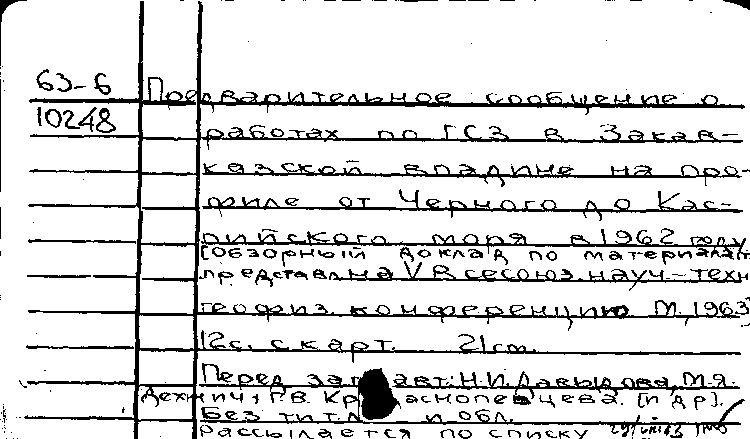 63-6
10248
Предварительное сообщение о
работах по ГСЗ в Закав-
казской впадине на про-
филе от Черного до Кас-
пийского моря в 1962 году
[обзорный доклад по материалам
представл на V Всесоюз. науч.-техн
геофиз. конференцию М., 1963
12с. с карт. 21 cm.
Перед заг авт: Н.И. Давыдова, М.Я.
Дехнич, Г.В. Краснопевцева. [и др].
Без тит. л. и обл.
Рассылается по списку